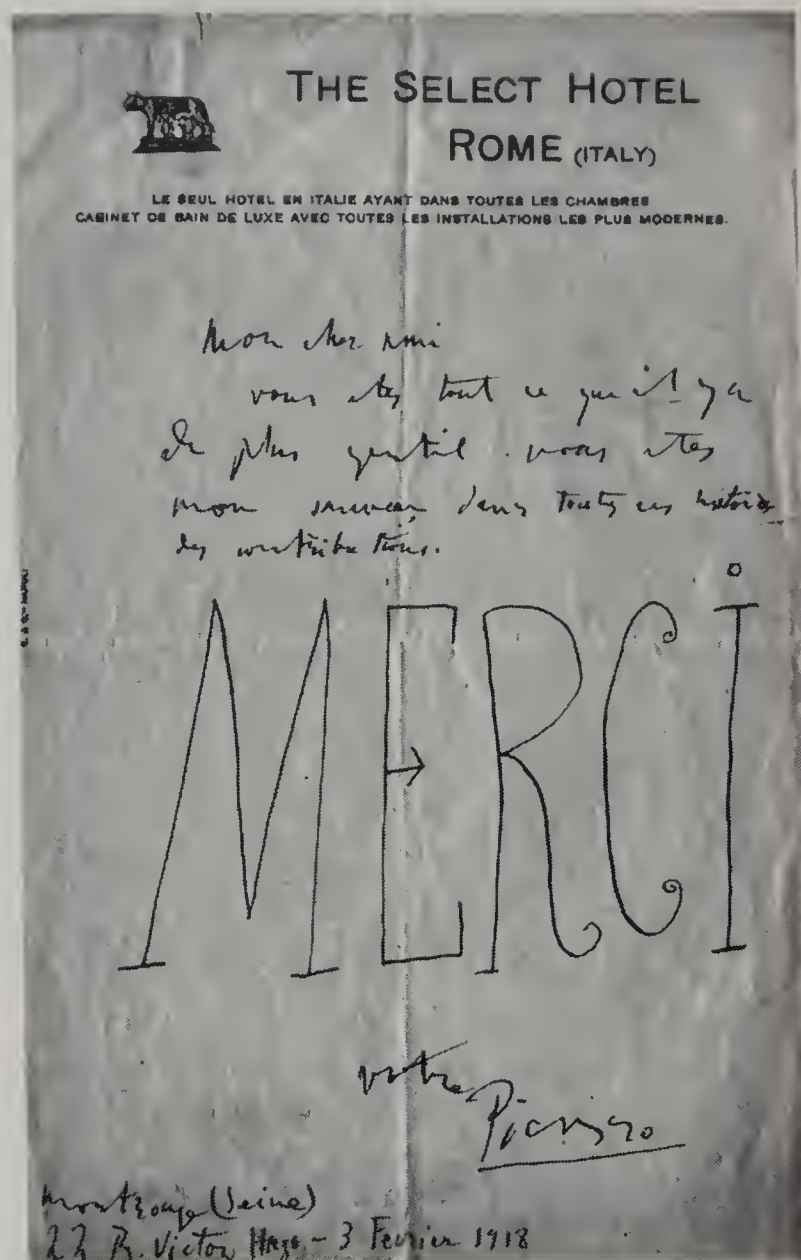 THE SELECT HOTEL
ROME (ITALY)
LE SEUL HOTEL EN ITALIE AYANT DANS TOUTES LES CHAMBRES
CABINET DE BAIN DE LUXE AVEC TOUTES LES INSTALLATIONS LES PLUS MODERNES.
Mon cher ami
vous etes tout ce qu'il y a
de plus gentil. vous etes
mon sauveur dans toutes ces histoires
des contributions.
MERCi
votre
Picasso
Montrouge (Seine)
22 R. Victor Hugo - 3 Fevrier 1918